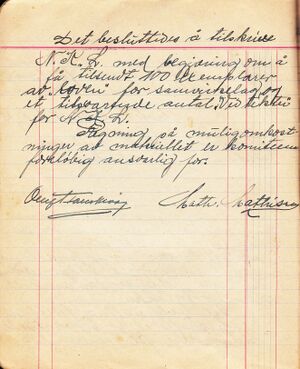 Det besluttides å tilskrive
N. K. L. med begjæring om å
få tilsendt 100 exemplarer
av "Loven" for samvirkelag og
et tilsvarende antal "Vedtekter"
for N. K. L.
på muligomkost-
ninger av materiellet er komiteen
foreløbig ansvarlig for.
Math. Mathisen